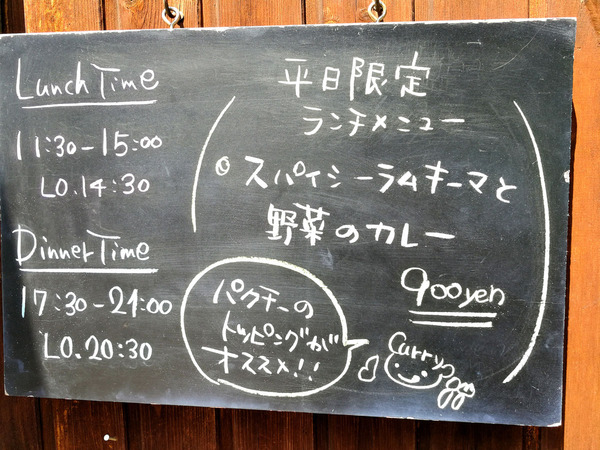 Lunch Time
11:30-15:00
LO.14:30
Dinner Time
17:30-21:00
LO.20:30
平日限定
ランチメニュー
◎スパイシーラムキーマと
野菜のカレー
900yen
パクチーの
トッピングが
オススメ!!
Curry